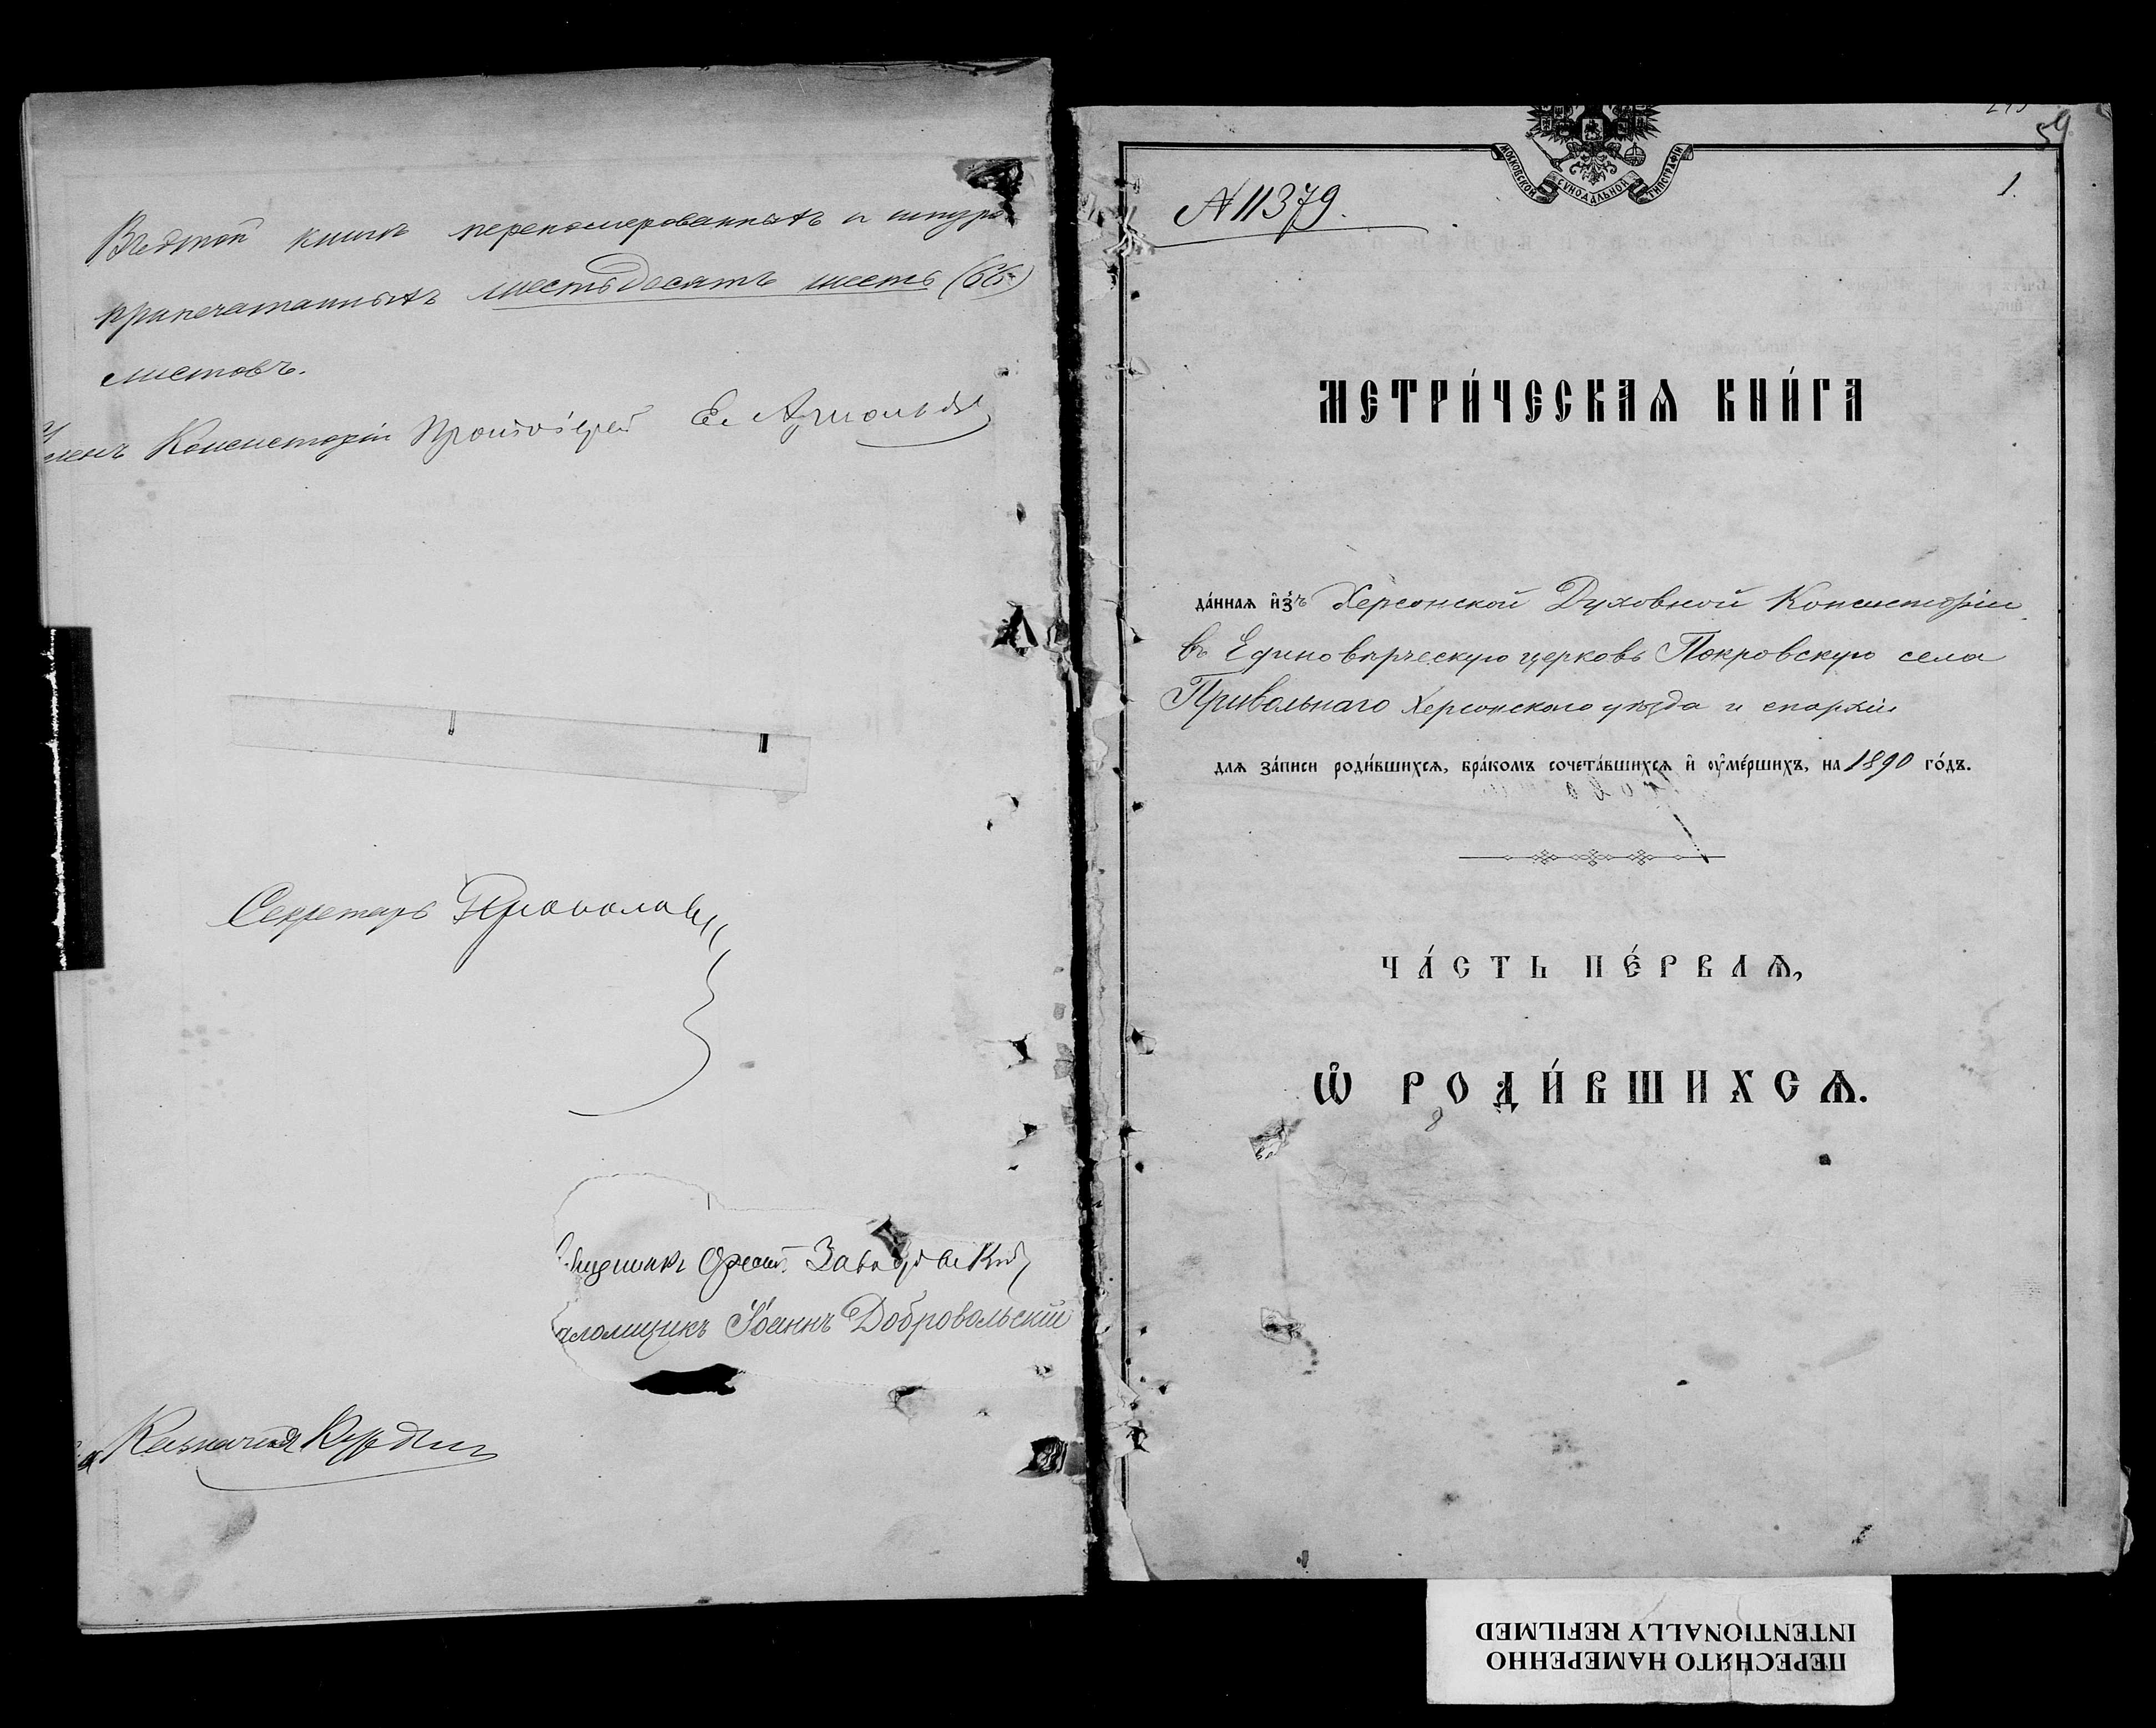 Въ этой книгѣ переномерованныхъ и шнуро
припечатанныхъ шестьдесятъ шесть (66)
листовъ.
Членъ Консисторіи Протоіерей Е. Арнольдъ
Секретарь
Священникъ Орест.
Псаломщикъ Іоаннъ Добровольскій
Казначея
59
1.
МОСКОВСКОЙ СѴНОДАЛЬНОЙ ТИПОГРАФІИ
№ 11379.
МЕТРИ́ЧЕСКАѦ КНИ́ГА
да́ннаѧ и҆зъ Херсонской Духовной Консисторіи
въ Единовѣрческую церковь Покровскую села
Привольнаго Херсонскаго уѣзда и епархіи
длѧ за́писи роди́вшихсѧ, бра́комъ сочета́вшихсѧ и҆ ѹ҆ме́ршихъ, на 1890 го́дъ.
ЧА́СТЬ ПЕ́РВАѦ,
Ѡ҆ РОДИ́ВШИХСѦ.
ПЕРЕСНЯТО НАМЕРЕННО
INTENTIONALLY REFILMED